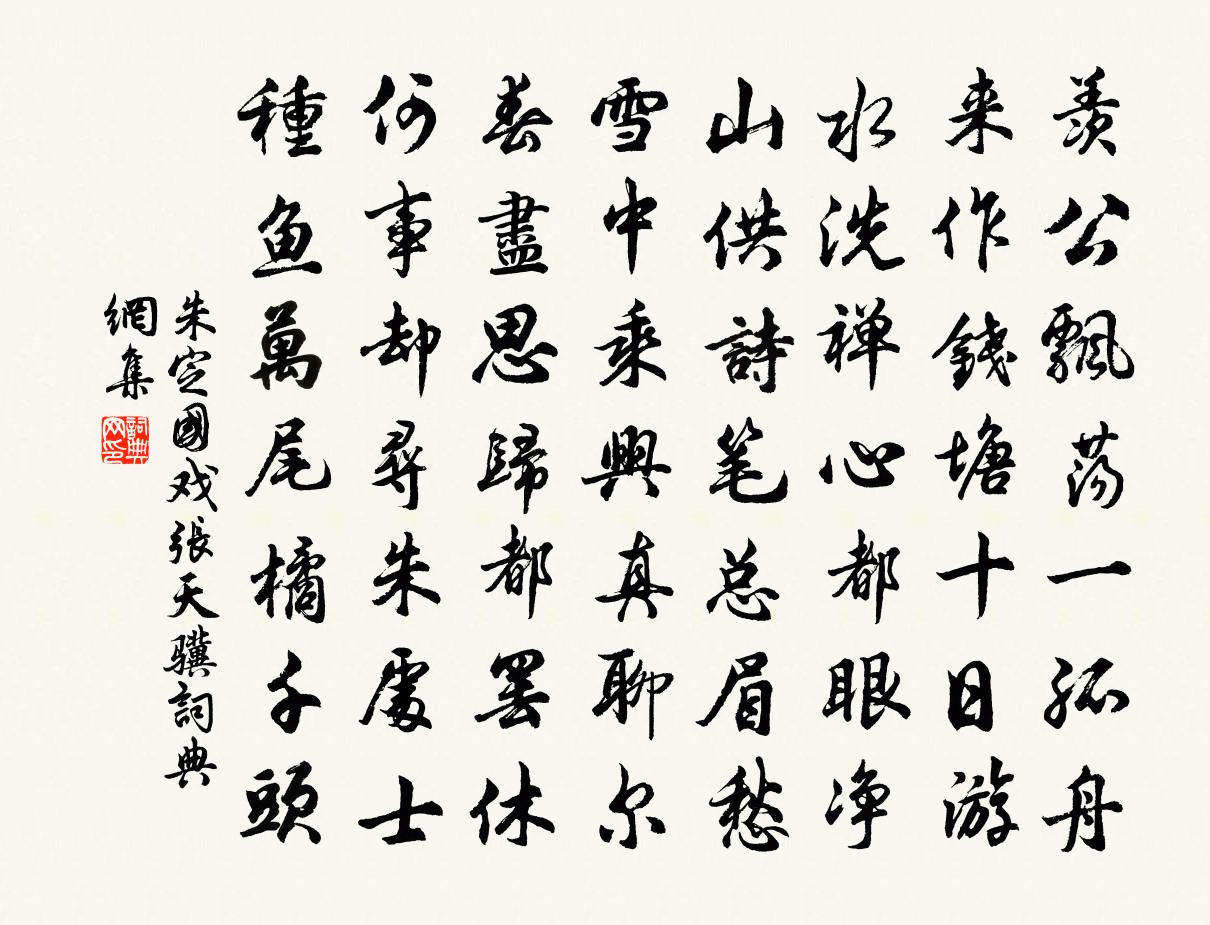 羨公飄蕩一孤舟
来作錢塘十日游
水洗禅心都眼净
山供詩笔总眉愁
雪中乘興真聊尔
春盡思歸都罢休
何事却尋朱處士
種鱼萬尾橘千頭
朱定國戏張天驥詞典
網集
詞典
网印